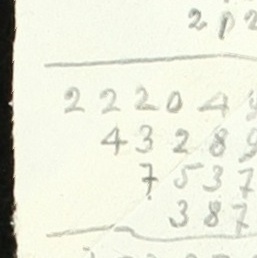 2 p 2
2 2 2 0 4 9
4 3 2 8 9
7 5 3 7
3 8 7